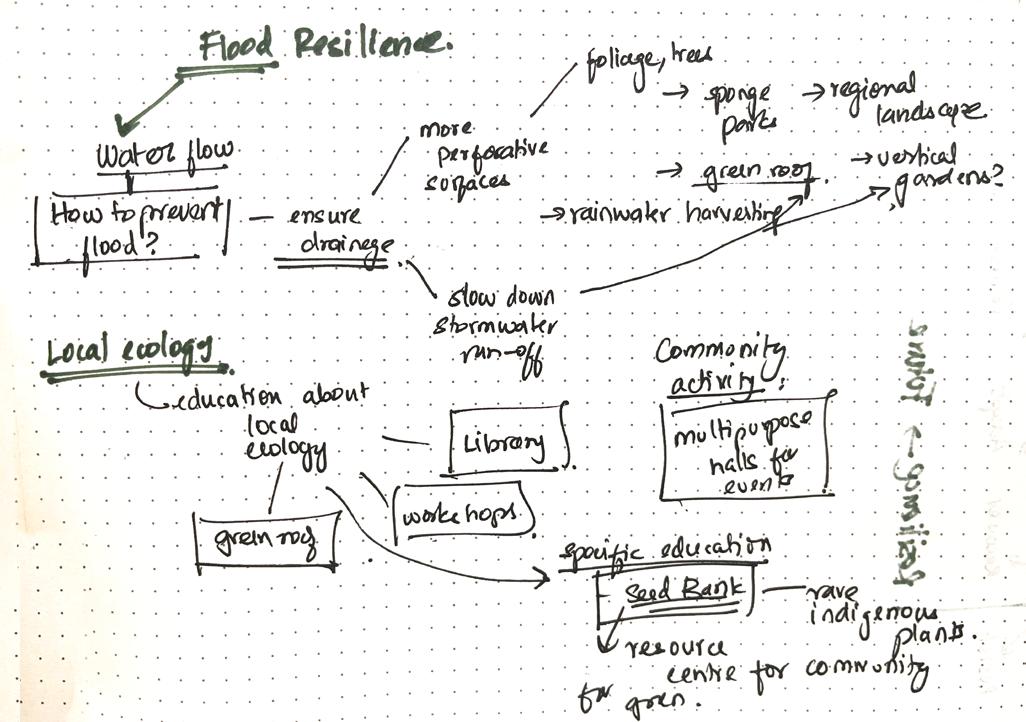 Flood Resilience.
Water flow
How to prevent
flood?
ensure
drainege
more
perforative
surfaces
foliage, trees
→ sponge
parks
→ regional
landscape
→ green roof.
→ vertical
gardens?
→ rainwater harvesting
slow down
stormwater
run-off
Local ecology
education about
local
ecology
Library
workshops
green roof
Community
activity:
multipurpose
halls for
events
specific education
seed Bank
rare
indigenous
plants.
resource
centre for community
for green.